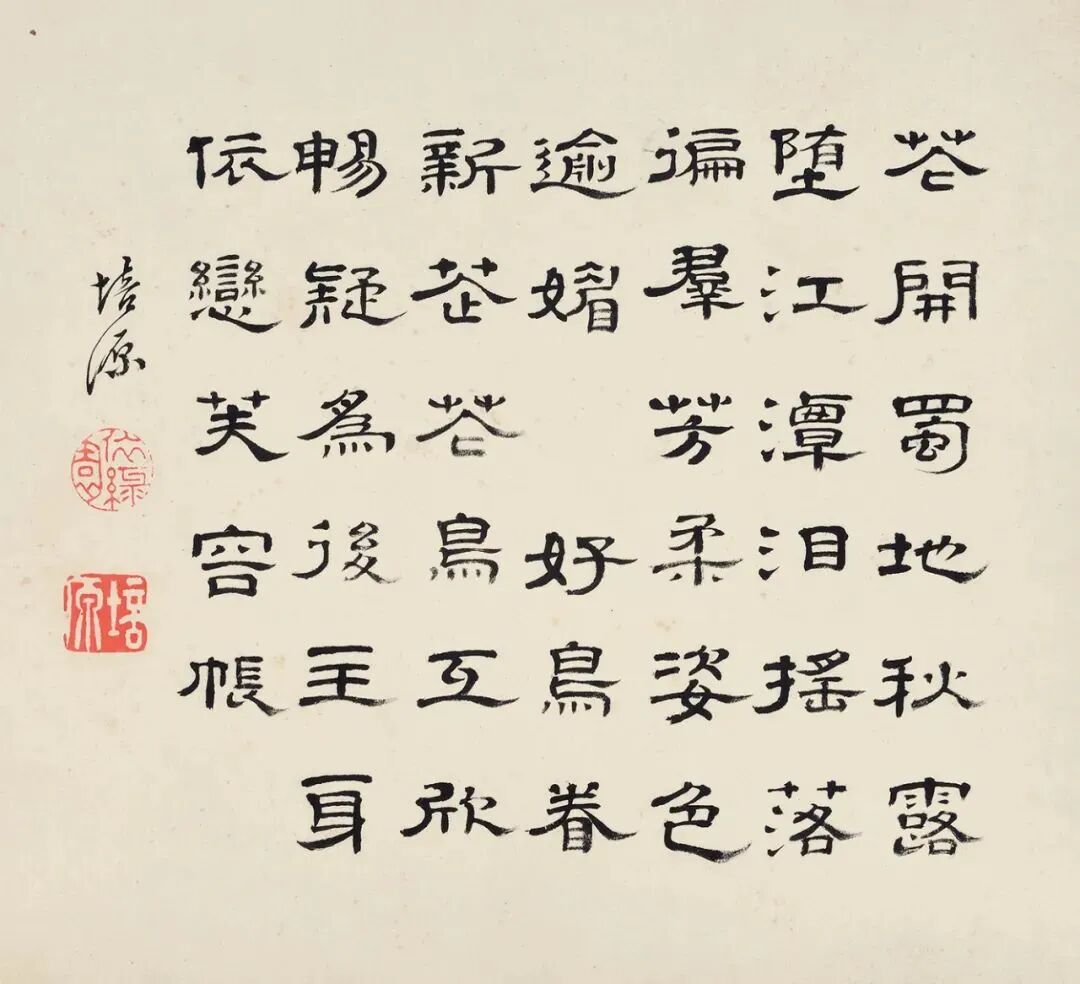 花開蜀地秋露
堕江潭泪搖落
徧羣芳柔姿色
逾媚 好鳥眷
新芷花鳥互欣
暢疑為後主身
依戀芙容帳
培源
依綠
培源